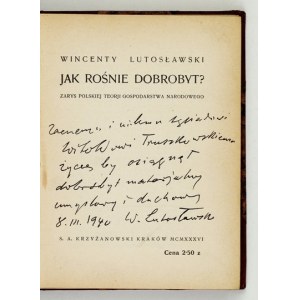 WINCENTY LUTOSŁAWSKI
JAK ROŚNIE DOBROBYT?
ZARYS POLSKIEJ TEORJI GOSPODARSTWA NARODOWEGO
i miłemu sąsiadowi
Witoldowi Truszkowskiemu
życzę by osiągnął
dobrobyt materjalny
umysłowy i duchowy
8.III.1940 W. Lutosławski
S. A. KRZYŻANOWSKI KRAKÓW MCMXXXVI
Cena 2·50 z